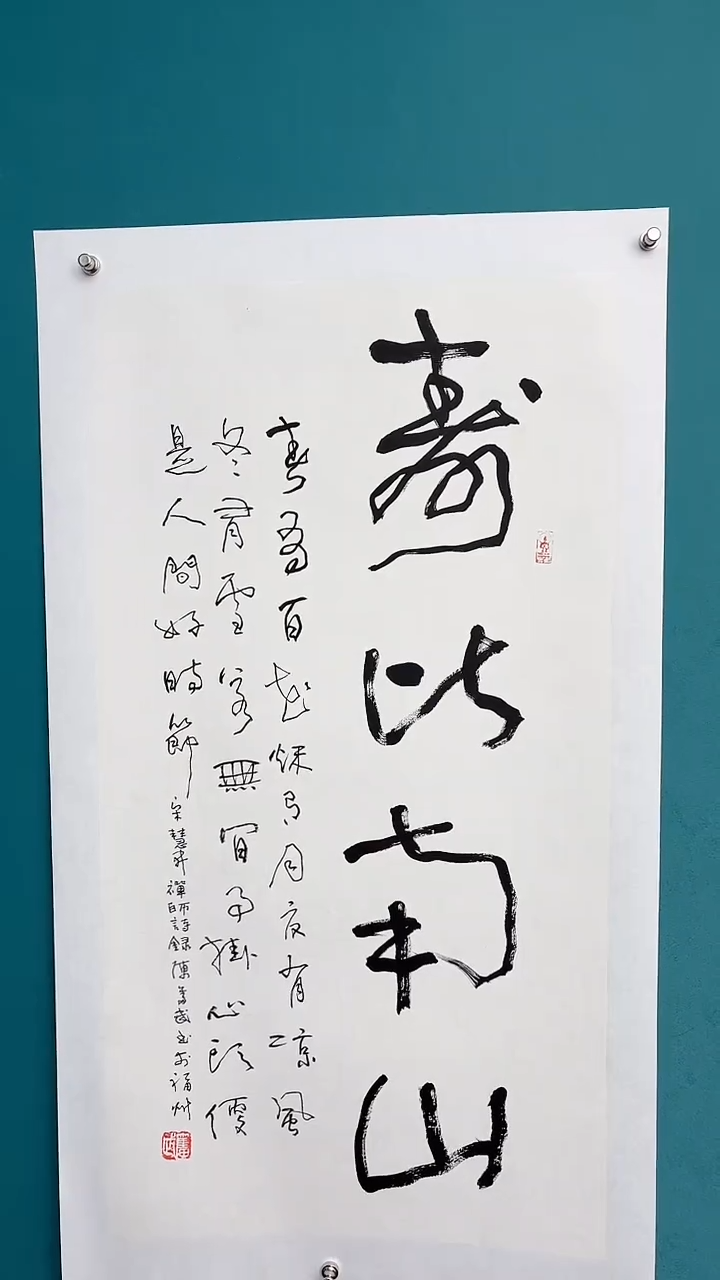 壽比南山
春有百花秋有月夏有涼風
冬有雪若無閒事掛心頭便
是人間好時節 宋慧開禪師詩錄陳奮武書於福州